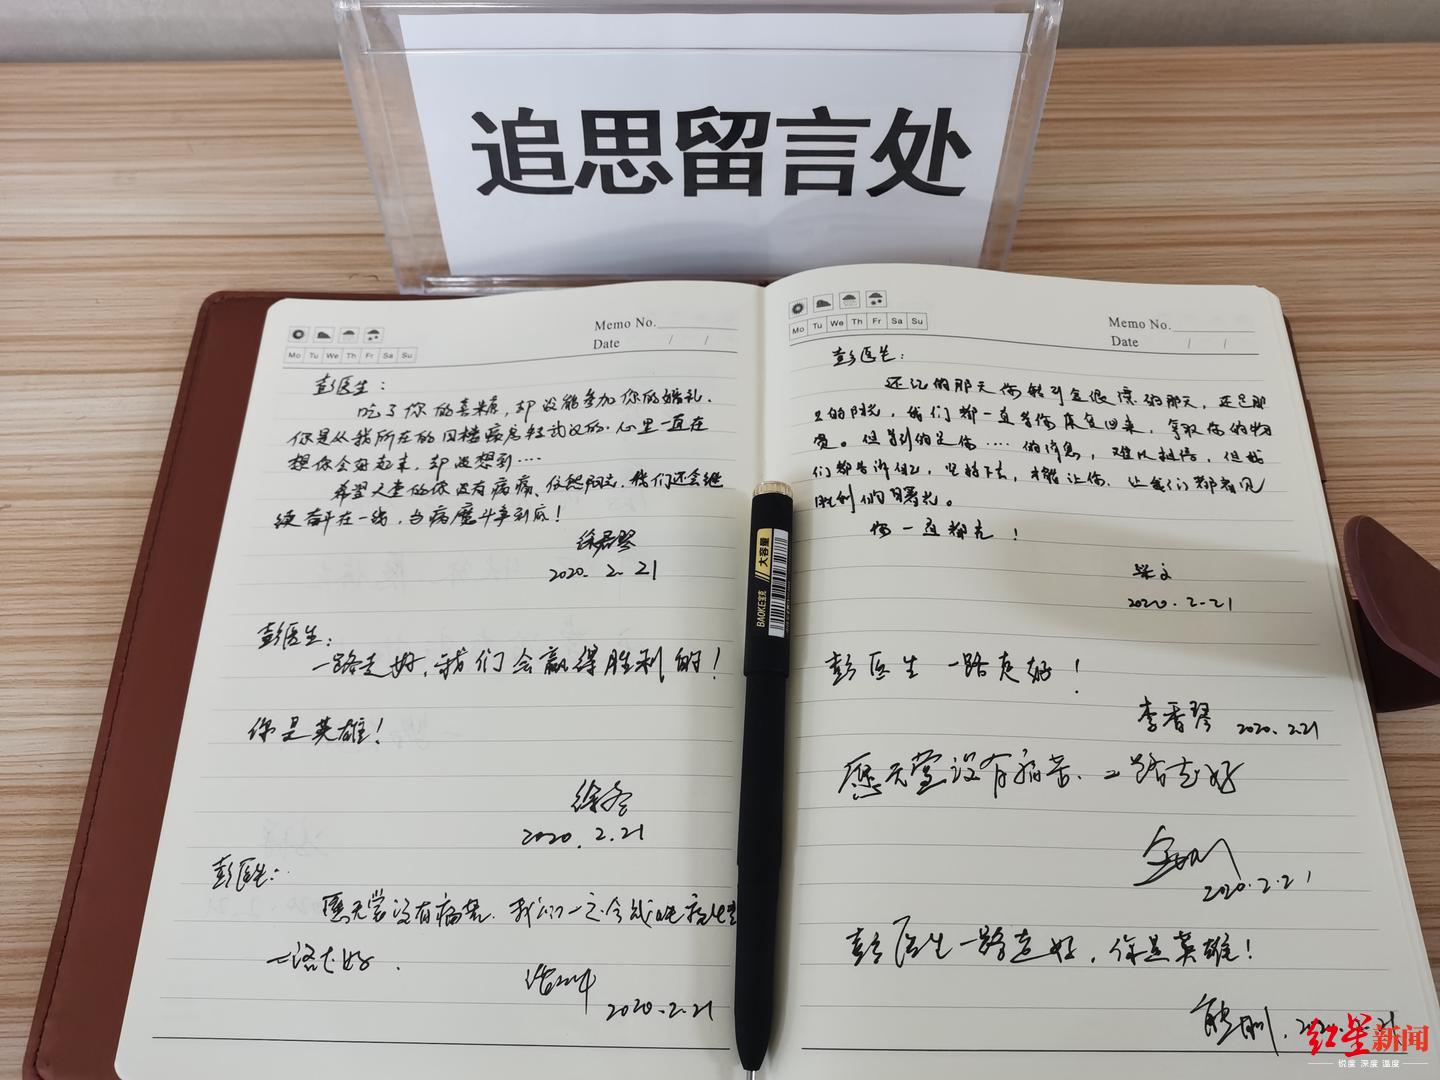 追思留言处
Memo No.
Date / /
Mo Tu We Th Fr Sa Su
彭医生：
吃了你的喜糖，却没能参加你的婚礼.
你是从我所在的口楼病房转武汉的.心里一直在
想你会好起来,却没想到····
希望天堂的你没有病痛、依然阳光,我们还会继
续奋斗在一线,与病魔斗争到底！
2020.2.21
彭医生：
一路走好,我们会赢得胜利的！
你是英雄！
徐冬
2020.2.21
彭医生：
愿天堂没有病苦.我们一定会战胜病
一路走好.
2020.2.21
Memo No.
Date / /
Mo Tu We Th Fr Sa Su
彭医生：
还记的那天你转到金银潭的那天，还是那
么的阳光，我们都一直等你康复回来，拿取你的物
资。但等到的是你····的消息，难以相信，但我
们都告诉自己，坚持下去，才能让你，让我们都看见
胜利的曙光。
你一直都在！
2020.2-21
彭医生一路走好！
李香琴 2020.2.21
愿天堂没有病苦、一路走好
2020.2.21
彭医生一路走好，你是英雄！
熊刚.
BAOKE宝克 大容量
红星新闻
锐度 深度 温度